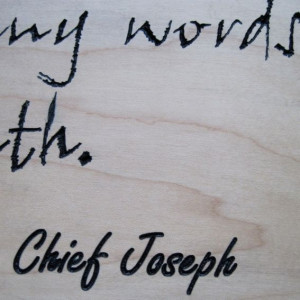 my words
th.
Chief Joseph